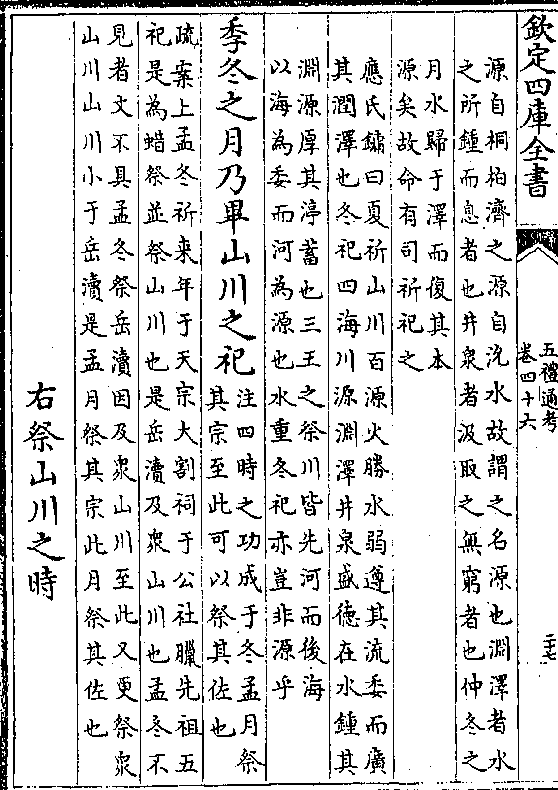 欽定四庫全書
五禮通考
卷四十六
二十七
源自桐柏濟之源自沇水故謂之名源也淵澤者水
之所鍾而息者也井泉者汲取之無窮者也仲冬之
月水歸于澤而復其本
源矣故命有司祈祀之
應氏鏞曰夏祈山川百源火勝水弱遵其流委而廣
其潤澤也冬祀四海川源淵澤井泉盛德在水鍾其
淵源厚其渟蓄也三王之祭川皆先河而後海
以海為委而河為源也水重冬祀亦豈非源乎
季冬之月乃畢山川之祀
注四時之功成于冬孟月祭
其宗至此可以祭其佐也
疏案上孟冬祈来年于天宗大割祠于公社臘先祖五
祀是為蜡祭並祭山川也是岳瀆及衆山川也孟冬不
見者文不具孟冬祭岳瀆因及衆山川至此又更祭衆
山川山川小于岳瀆是孟月祭其宗此月祭其佐也
右祭山川之時